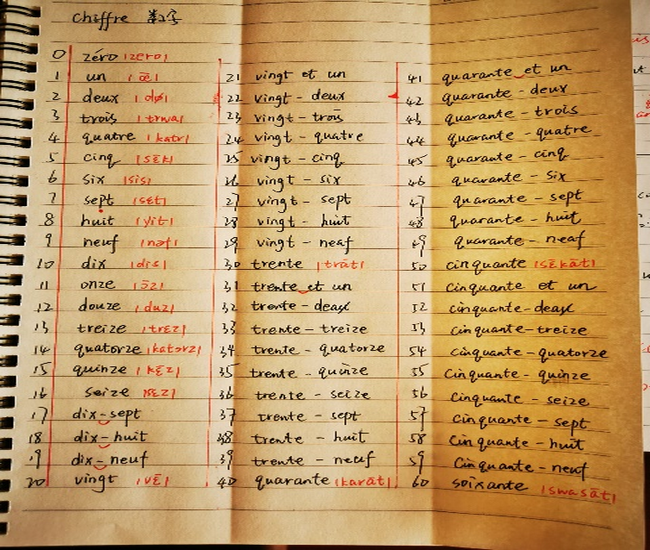 Chiffre 数字
0 zéro |zero|
1 un |œ̃|
2 deux |dø|
3 trois |trwa|
4 quatre |katr|
5 cinq |sɛ̃k|
6 six |sis|
7 sept |sɛt|
8 huit |yit|
9 neuf |nəf|
10 dix |dis|
11 onze |ɔ̃z|
12 douze |duz|
13 treize |trɛz|
14 quatorze |katɔrz|
15 quinze |kɛ̃z|
16 seize |sɛz|
17 dix-sept
18 dix-huit
19 dix-neuf
20 vingt |vɛ̃|
21 vingt et un
22 vingt - deux
23 vingt - trois
24 vingt - quatre
25 vingt - cinq
26 vingt - six
27 vingt - sept
28 vingt - huit
29 vingt - neuf
30 trente |trɑ̃t|
31 trente et un
32 trente - deux
33 trente - treize
34 trente - quatorze
35 trente - quinze
36 trente - seize
37 trente - sept
38 trente - huit
39 trente - neuf
40 quarante |karɑ̃t|
41 quarante et un
42 quarante - deux
43 quarante - trois
44 quarante - quatre
45 quarante - cinq
46 quarante - six
47 quarante - sept
48 quarante - huit
49 quarante - neuf
50 cinquante |sɛ̃kɑ̃t|
51 cinquante et un
52 cinquante - deux
53 cinquante - treize
54 cinquante - quatorze
55 cinquante - quinze
56 cinquante - seize
57 cinquante - sept
58 cinquante - huit
59 cinquante - neuf
60 soixante |swasɑ̃t|